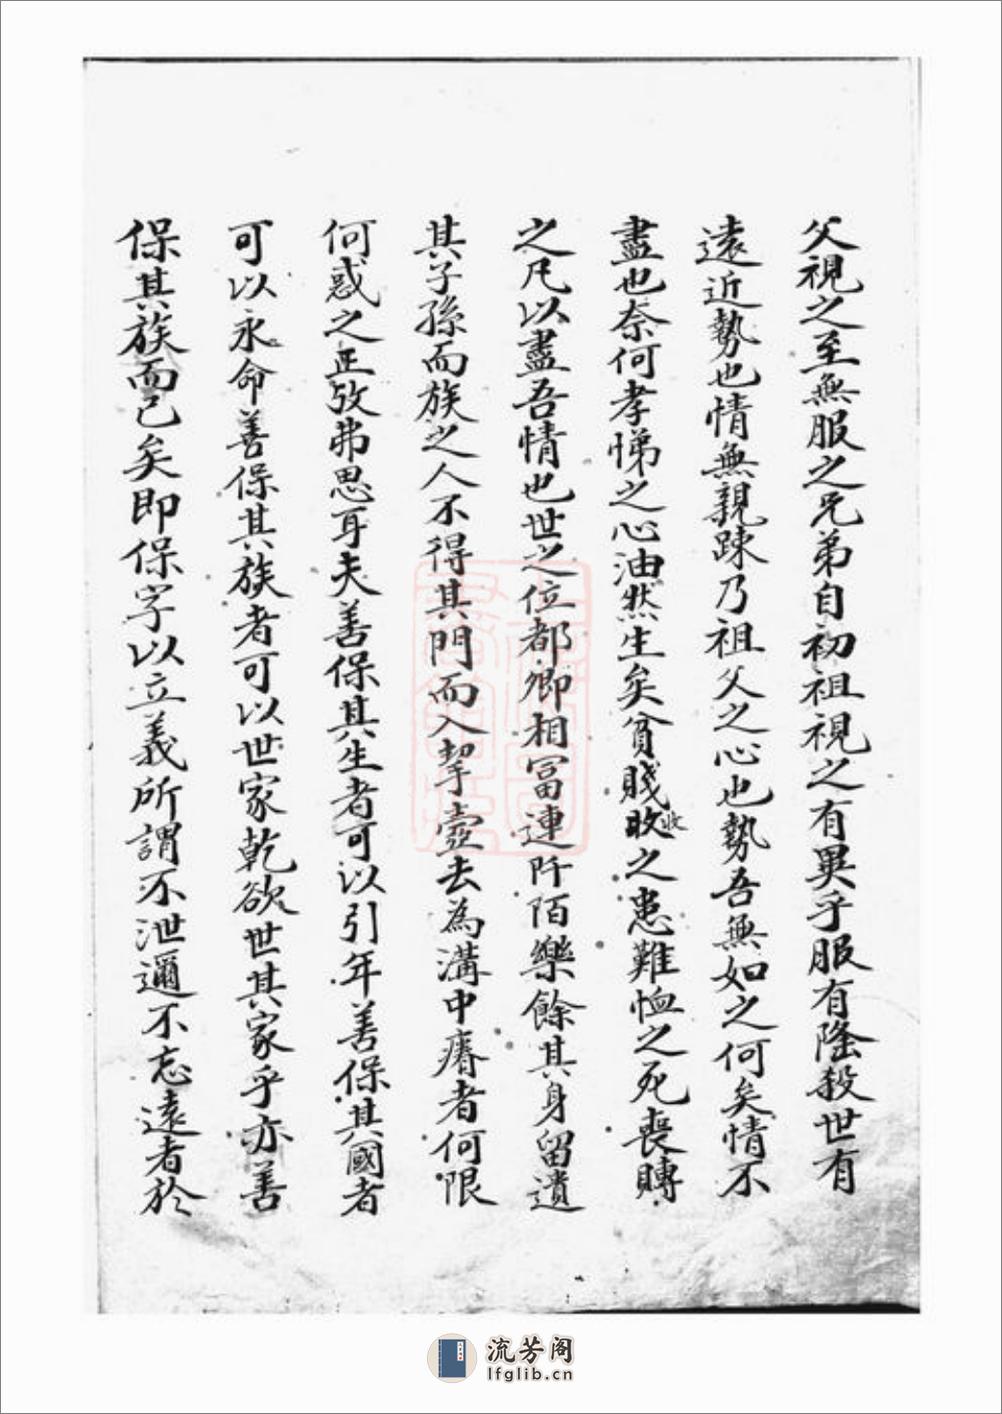 父視之至無服之兄弟自初祖視之有異乎服有隆殺世有
遠近勢也情無親踈乃祖父之心也勢吾無如之何矣情不
盡也奈何孝悌之心油然生矣貧賤收之患難恤之死喪賻
之凡以盡吾情也世之位都卿相冨連阡陌樂餘其身留遺
其子孫而族之人不得其門而入挈壺去為溝中瘠者何限
何惑之正攷弗思耳夫善保其生者可以引年善保其國者
可以永命善保其族者可以世家乾欲世其家乎亦善
保其族而已矣即保字以立義所謂不泄邇不忘遠者於
流芳阁
lfglib.cn